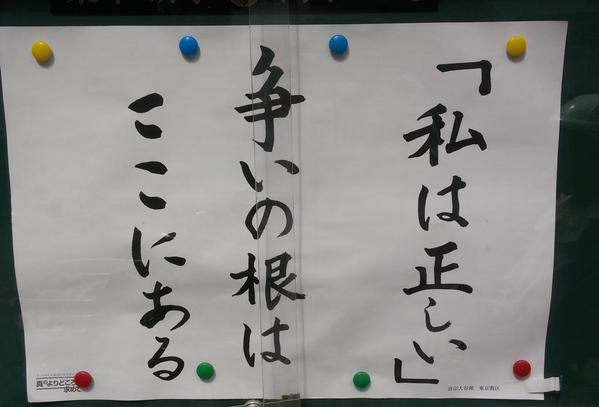 「私は正しい」
争いの根は
ここにある
真宗大谷派 東京教区
真のよりどころを
求めて